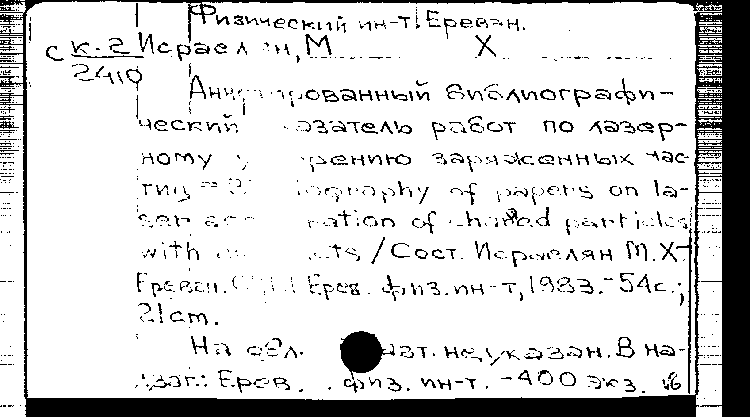 Физический ин-т. Ереван.
с к.г Исраелян, М Х
2410
Аннотированный библиографи-
ческий указатель работ по лазер-
ному ускорению заряженных час-
тиц = Bibliography of papers on la-
ser acceleration of charged particles
with / Сост. Исраелян М.Х.-
Ереван. Ерев. физ. ин-т, 1983.-54с.;
21cm.
На обл. авт. не указан. В на-
дзаг.: Ерев. физ. ин-т. -400 экз.